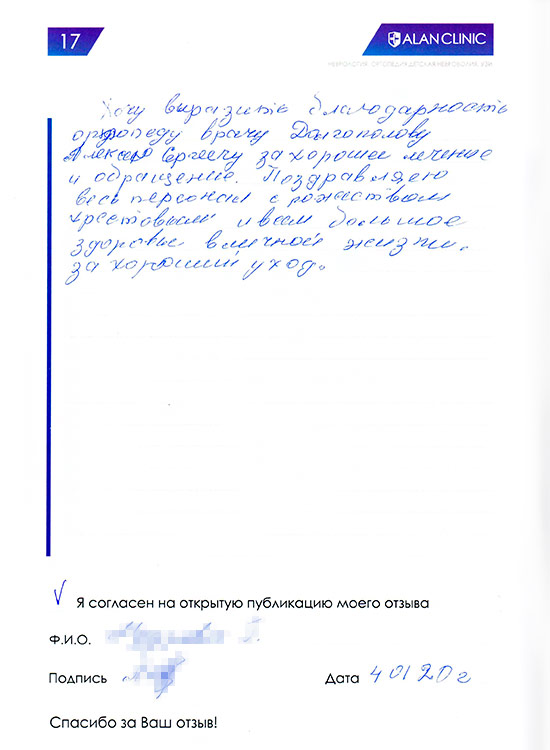 17
ALAN CLINIC
НЕВРОЛОГИЯ, ОРТОПЕДИЯ, ДЕТСКАЯ НЕВРОЛОГИЯ, УЗИ
Хочу выразить благодарность
ортопеду врачу Долгополову
Алексею Сергеечу за хорошее лечение
и обращение. Поздравляею
весь персонал с рожаством
хрестовым и всем большое
здоровье в личной жизни.
за хороший уход.
V
Я согласен на открытую публикацию моего отзыва
Ф.И.О.
Подпись
Дата 4 01 20 г
Спасибо за Ваш отзыв!